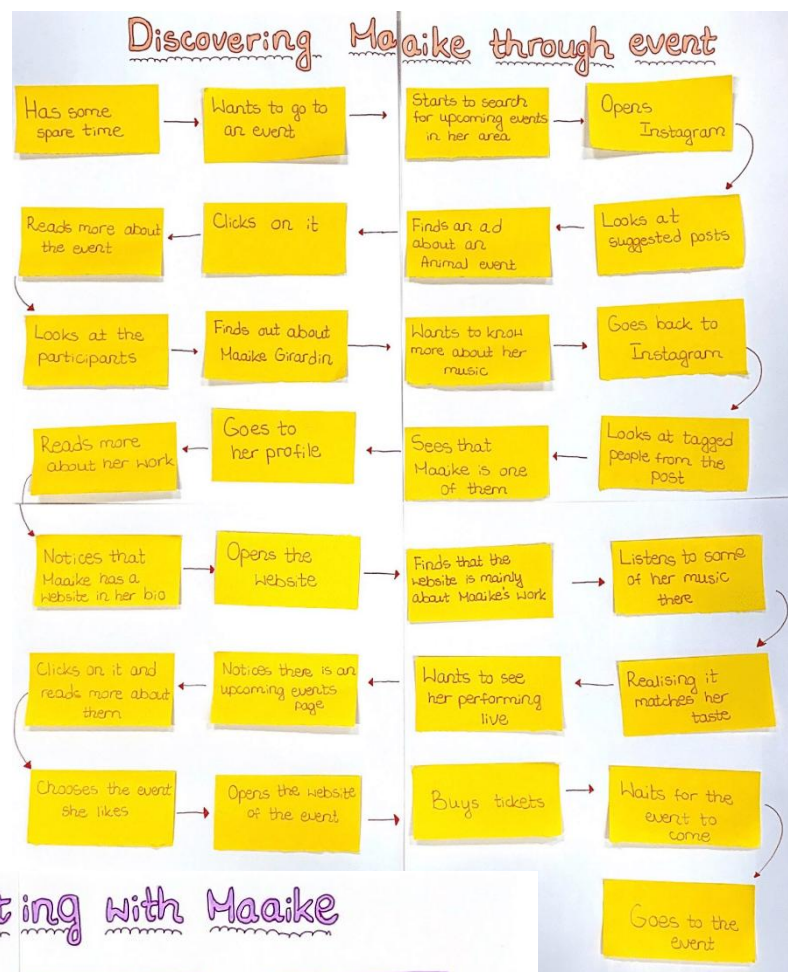 Discovering Maaike through event
Has some
spare time
Wants to go to
an event
Starts to search
for upcoming events
in her area
Opens
Instagram
Looks at
suggested posts
Finds an ad
about an
Animal event
Clicks on it
Reads more about
the event
Looks at the
participants
Finds out about
Maaike Girardin
Wants to know
more about her
music
Goes back to
Instagram
Looks at tagged
people from the
post
Sees that
Maaike is one
of them
Goes to
her profile
Reads more
about her work
Notices that
Maaike has a
website in her bio
Opens the
website
Finds that the
website is mainly
about Maaike's work
Listens to some
of her music
there
Realising it
matches her
taste
Wants to see
her performing
live
Notices there is an
upcoming events
page
Clicks on it and
reads more about
them
Chooses the event
she likes
Opens the website
of the event
Buys tickets
Waits for the
event to
come
Goes to the
event
ting with Maaike